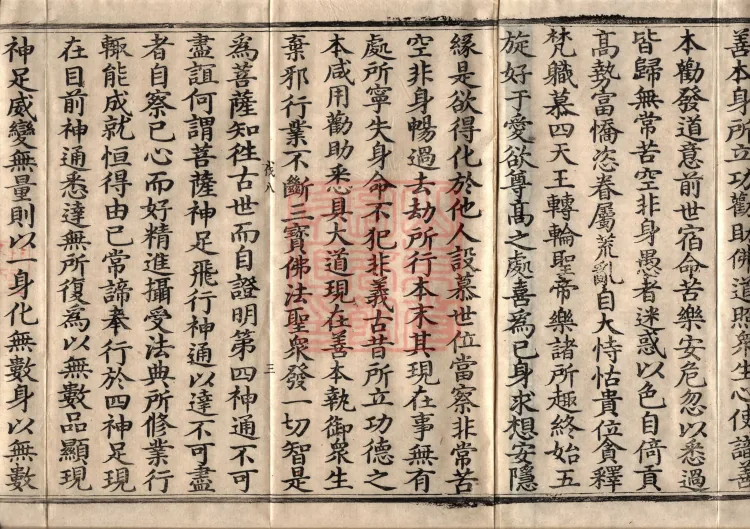 善本身所立功勸助佛道照衆生心使諸善
本勸發道意前世宿命苦樂安危忽以悉過
皆歸無常苦空非身愚者迷惑以色自倚貢
高勢富憣恣眷屬荒亂自大恃怙貴位貪釋
梵軄慕四天王轉輪聖帝樂諸所趣終始五
旋好于愛欲尊高之處喜爲己身求想安隱
緣是欲得化於他人設慕世位當察非常苦
空非身暢過去劫所行本末其現在事無有
處所寧失身命不犯非義古昔所立功德之
本咸用勸助悉具大道現在善本執御衆生
棄邪行業不斷三寶佛法聖衆發一切智是
伐八 三
爲菩薩知徃古世而自證明第四神通不可
盡誼何謂菩薩神足飛行神通以達不可盡
者自察己心而好精進攝受法典所修業行
輙能成就恒得由己常諦奉行於四神足現
在目前神通悉達無所復爲以無數品顯現
神足威變無量則以一身化無數身以無數